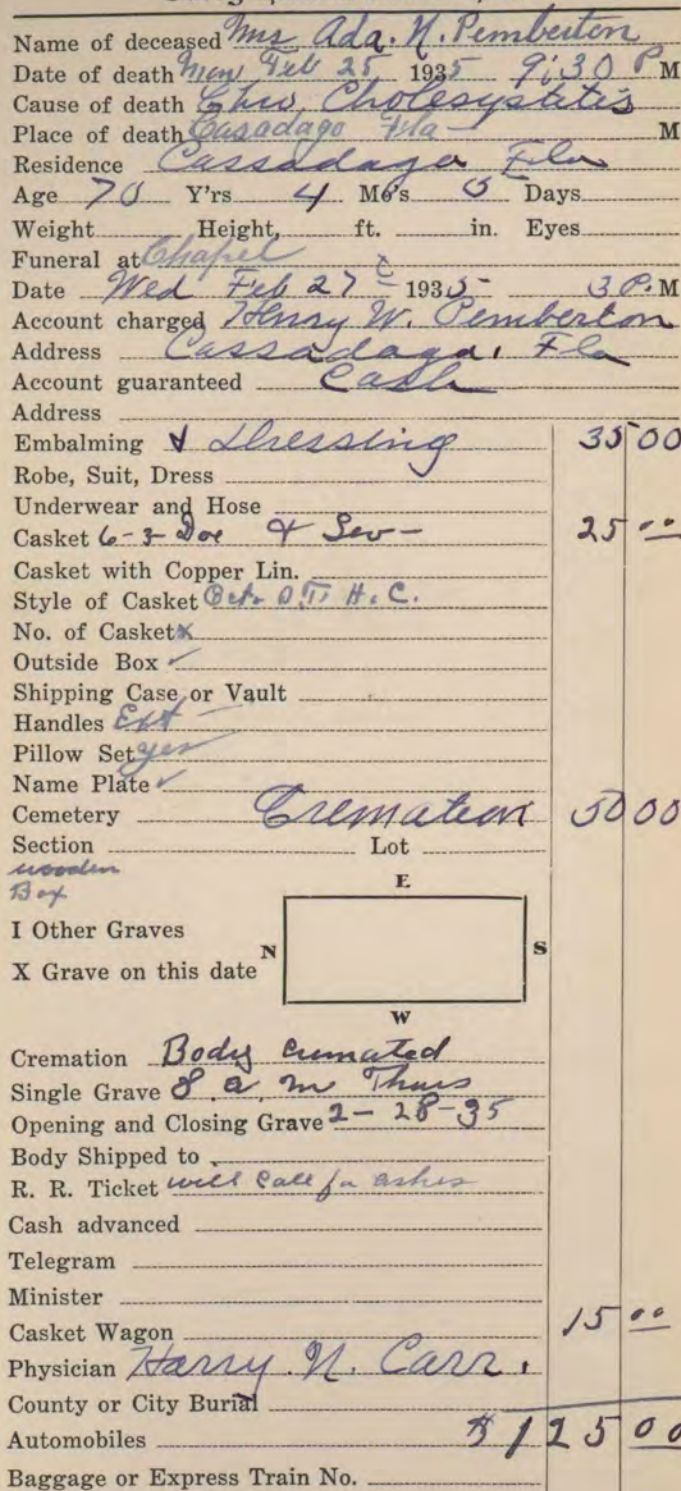 Name of deceased Mrs Ada. N. Pemberton
Date of death Mon Feb 25 1935 9:30 P M
Cause of death Chro. Cholesystetis
Place of death Casadago Fla M
Residence Cassadaga Fla
Age 70 Y'rs 4 Mo's 5 Days
Weight Height, ft. in. Eyes
Funeral at Chapel
Date Wed Feb 27 1935 3 P. M
Account charged Henry W. Pemberton
Address Cassadaga, Fla
Account guaranteed Cash
Address
Embalming & Dressing 35 00
Robe, Suit, Dress
Underwear and Hose
Casket 6-3 Doe & Sev - 25 00
Casket with Copper Lin.
Style of Casket Oct. O.T. H.C.
No. of Casket x
Outside Box ✓
Shipping Case or Vault
Handles Ext
Pillow Set yes
Name Plate ✓
Cemetery Cremation 50 00
Section Lot
wooden
Box
E
I Other Graves
N S
X Grave on this date
W
Cremation Body cremated
Single Grave 8 a m Thurs
Opening and Closing Grave 2-28-35
Body Shipped to
R. R. Ticket will call for ashes
Cash advanced
Telegram
Minister
Casket Wagon 15 00
Physician Harry N. Carr.
County or City Burial
Automobiles $125 00
Baggage or Express Train No.